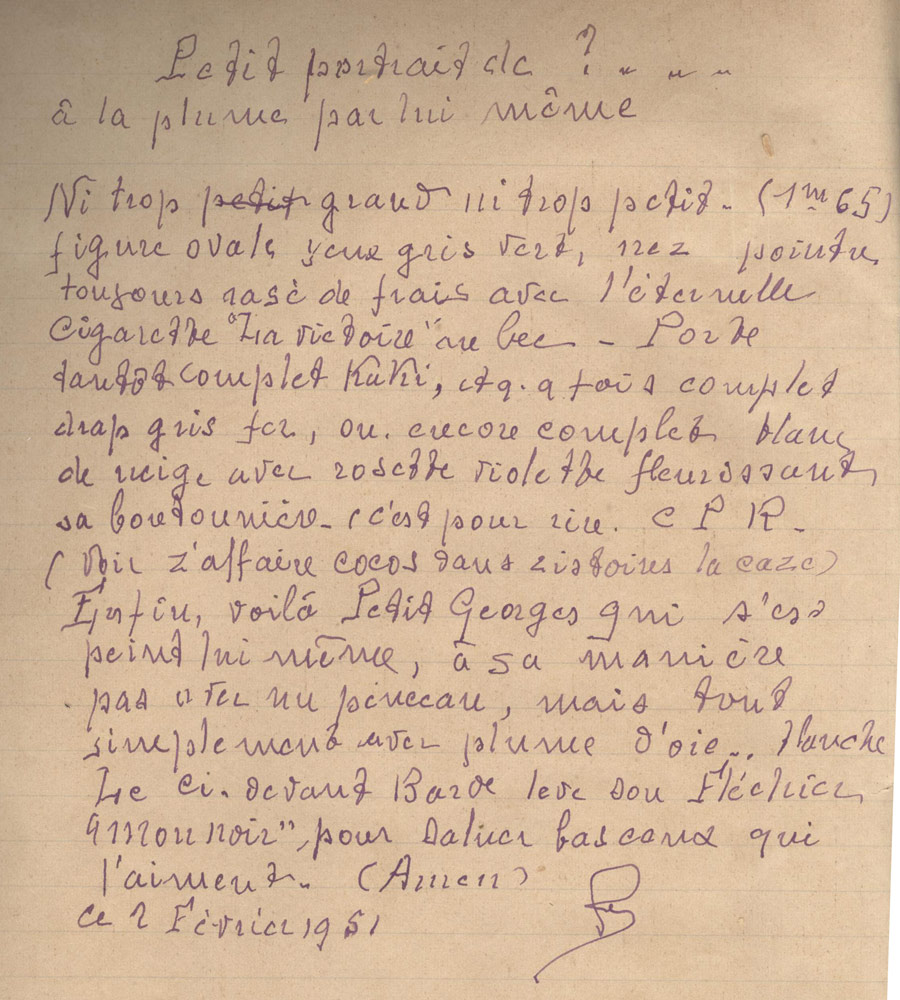 Petit portrait de ? „ „ „
à la plume par lui même
Ni trop petit grand ni trop petit. (1m65)
figure ovale yeux gris vert, nez pointu
toujours rasé de frais avec l'éternelle
Cigarette "La victoire" au bec - Porte
tantôt complet Kaki, et q.q fois complet
drap gris fer, ou encore complet blanc
de neige avec rosette violette fleurissant
sa boutonnière - (c'est pour rire. C P R -
(Voir z'affaire cocos dans zistoires la caze)
Enfin, voilà Petit Georges qui s'est
peint lui même, à sa manière
pas avec un pinceau, mais tout
simplement avec plume d'oie.. blanche
Le ci-devant Barde leve son
pour saluer bas ceux qui
l'aiment. (Amen)
ce 2 Février 1951